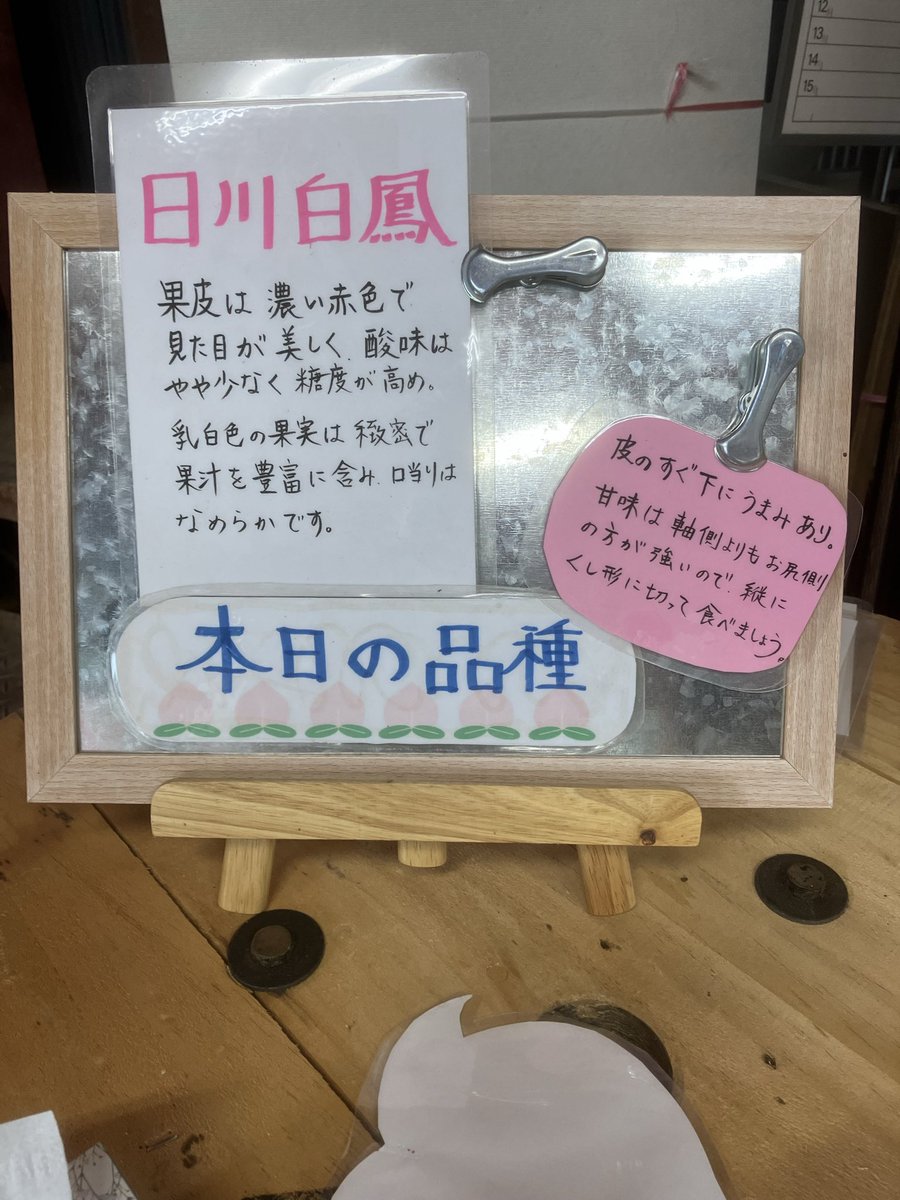 12
13
14
15
日川白鳳
果皮は 濃い赤色で
見た目が 美しく、酸味は
やや少なく 糖度が 高め。
乳白色の果実は 緻密で
果汁を豊富に含み、口当りは
なめらかです。
皮のすぐ下にうまみあり。
甘味は軸側よりもお尻側
の方が強いので、縦に
くし形に切って食べましょう。
本日の品種